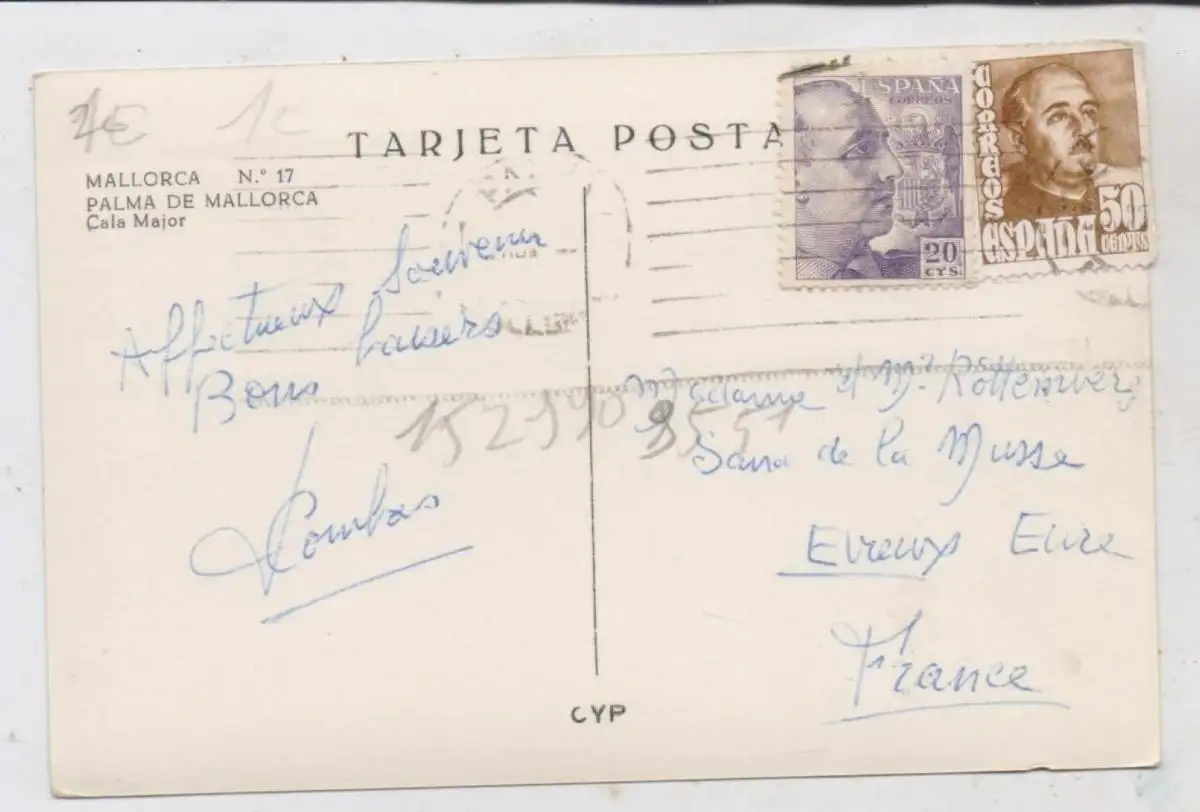 1€ 1€
TARJETA POSTA
MALLORCA N.º 17
PALMA DE MALLORCA
Cala Major
ESPAÑA
CORREOS
20
CTS.
CORREOS
ESPAÑA
50
Affectueux Souvenir
Bons baisers
Combas
152990 8551
Madame et Mr. Rottemberg
Sana de la Musse
Evreux Eure
France
CYP